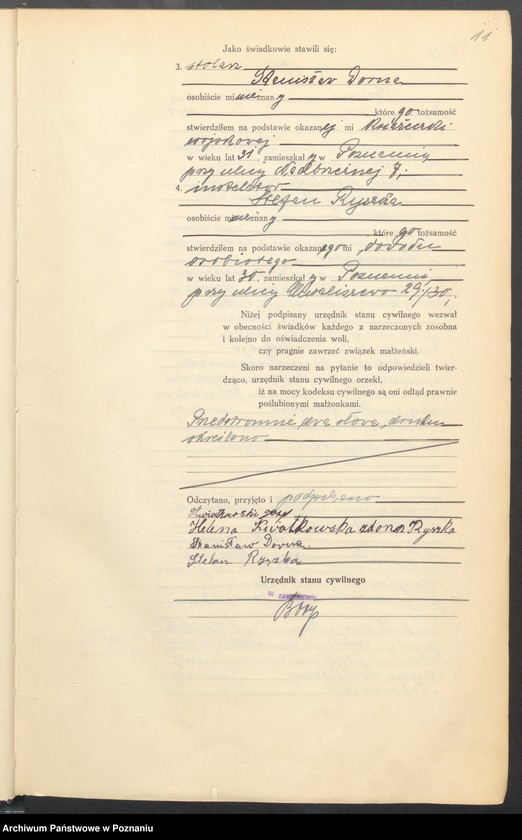 11
Jako świadkowie stawili się:
3. stolarz
Stanisław Dorna
osobiście mi nieznany
, które go tożsamość
stwierdziłem na podstawie okazanej mi książeczki
wojskowej
w wieku lat 31, zamieszkały w Poznaniu
przy ulicy Nadbrzeżnej 7,
4.
Stefan Ryszka
osobiście mi nieznany
, które go tożsamość
stwierdziłem na podstawie okazanego mi dowodu
osobistego
w wieku lat 30, zamieszkały w Poznaniu,
przy ulicy Chwaliszewo 29/30,
Niżej podpisany urzędnik stanu cywilnego wezwał
w obecności świadków każdego z narzeczonych zosobna
i kolejno do oświadczenia woli,
czy pragnie zawrzeć związek małżeński.
Skoro narzeczeni na pytanie to odpowiedzieli twier-
dząco, urzędnik stanu cywilnego orzekł,
iż na mocy kodeksu cywilnego są oni odtąd prawnie
poślubionymi małżonkami.
Przedstronnie dwa słowa druku
skreślono
Odczytano, przyjęto i podpisano
Kwiatkowski Józef
Helena Kwiatkowska zdomu Ryszka
Stanisław Dorna
Stefan Ryszka
Urzędnik stanu cywilnego
W zastępstwie
Archiwum Państwowe w Poznaniu